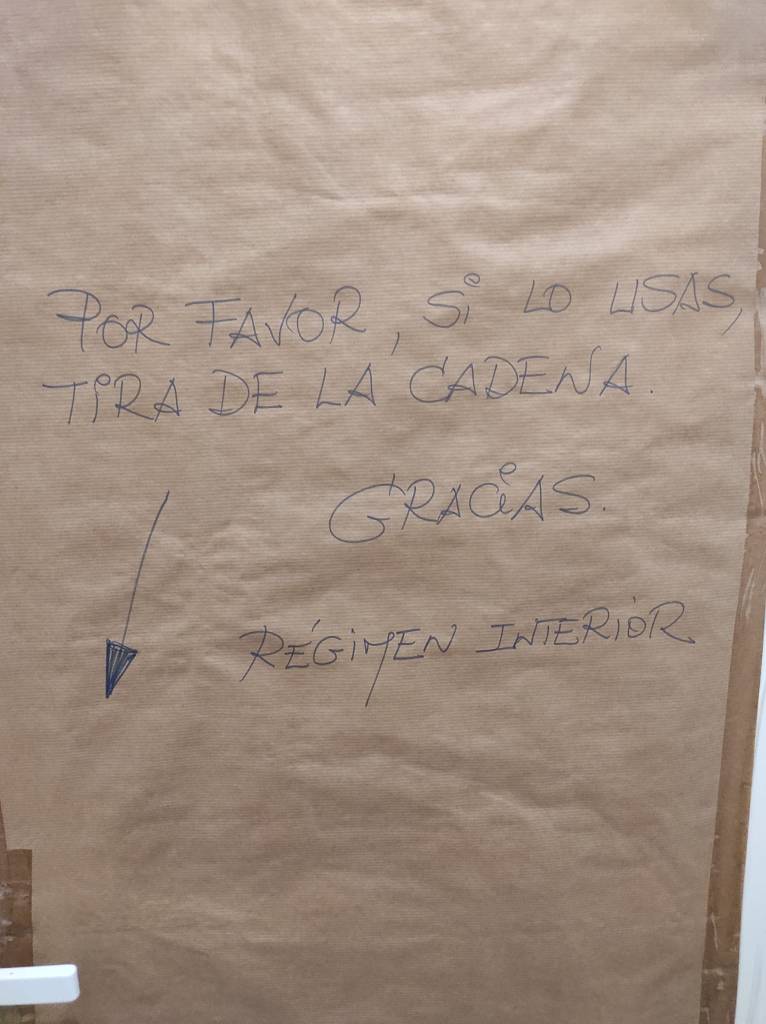 POR FAVOR, Si LO USAS,
TiRA DE LA CADENA.
GRACiAS.
RÉGiMEN INTERiOR